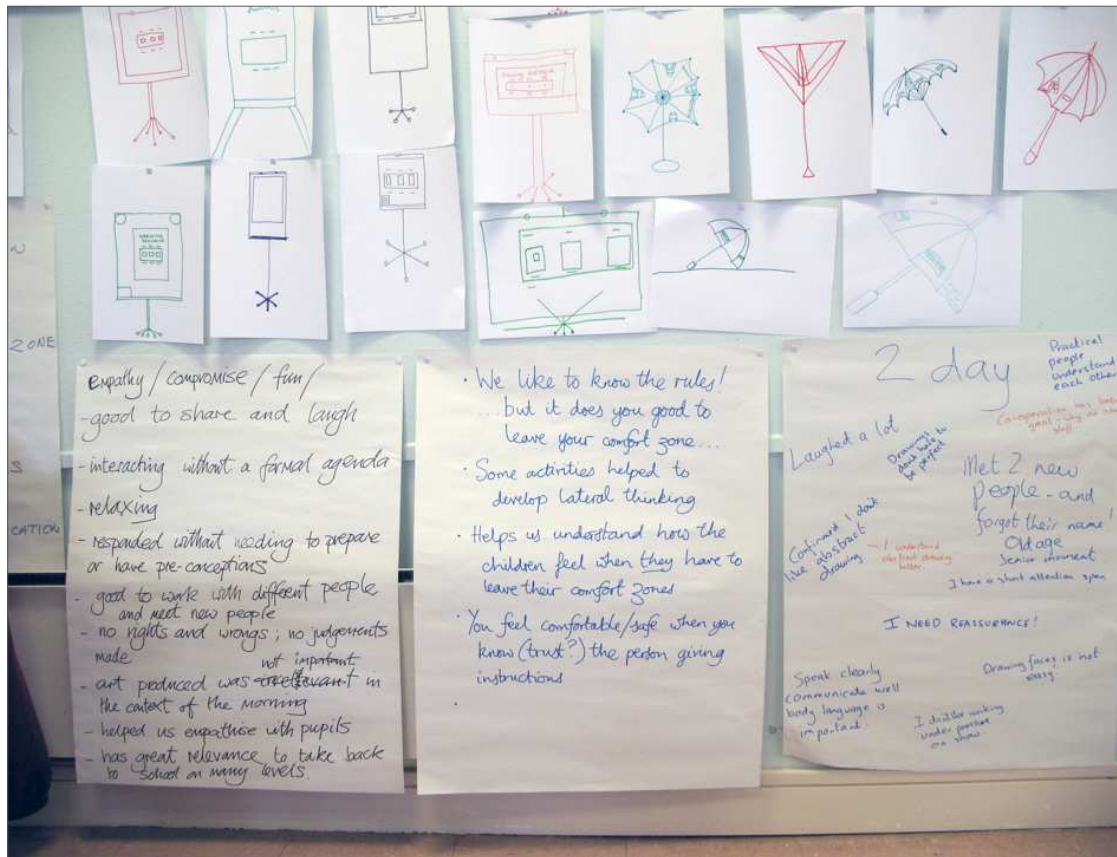 N
ZONE
S
CATION
Empathy / compromise / fun /
- good to share and laugh
- interacting without a formal agenda
- relaxing
- responded without needing to prepare
or have pre-conceptions
- good to work with different people
and meet new people
- no rights and wrongs ; no judgements
made
not important
- art produced was irrelevant in
the context of the morning
- helped us empathise with pupils
- has great relevance to take back
to school on many levels.
· We like to know the rules!
...but it does you good to
leave your comfort zone...
· Some activities helped to
develop lateral thinking
· Helps us understand how the
children feel when they have to
leave their comfort zones
· You feel comfortable/safe when you
know (trust?) the person giving
instructions
2 day
Practical
people
understand
each other
Co-operation has been
good - why
Laughed a lot
Drawings
dont have to
be perfect
Met 2 new
people - and
forgot their name!
Old age
Senior moment
I have a short attention span
Confirmed I dont
like abstract
drawing
I understand
abstract drawing
better.
I NEED REASSURANCE!
Drawing faces is not
easy.
Speak clearly
communicate well
body language is
important.
I dislike working
under pressure
on show